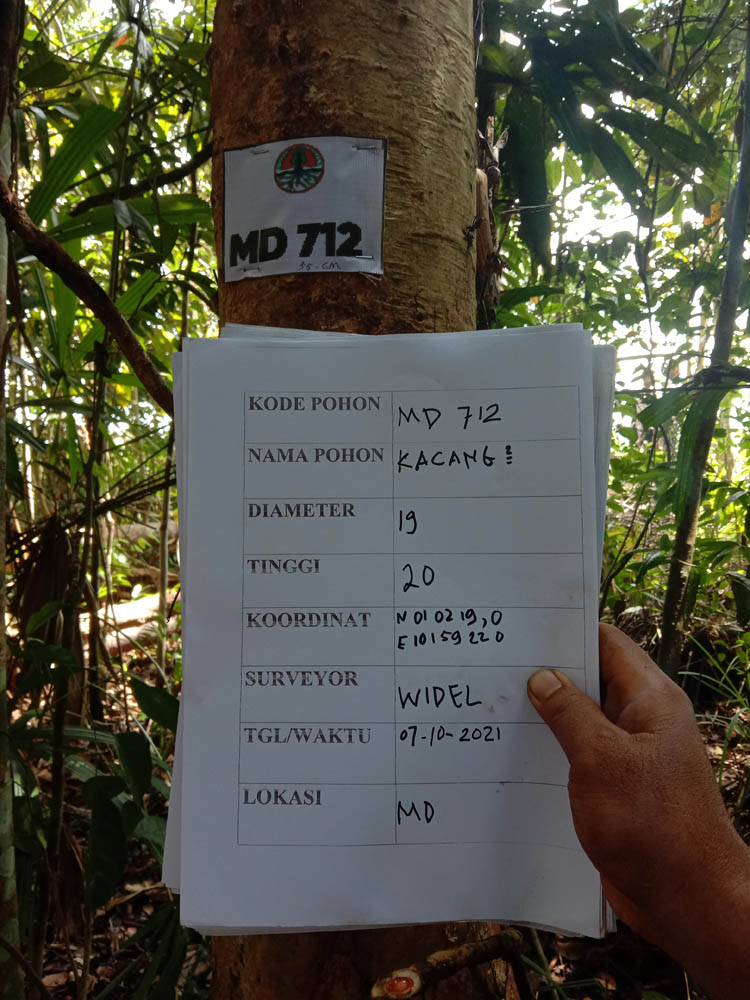 MD 712
55 CM
KODE POHON MD 712
NAMA POHON KACANG²
DIAMETER 19
TINGGI 20
KOORDINAT N 01 02 19,0
E 101 59 22 0
SURVEYOR WIDEL
TGL/WAKTU 07-10-2021
LOKASI MD